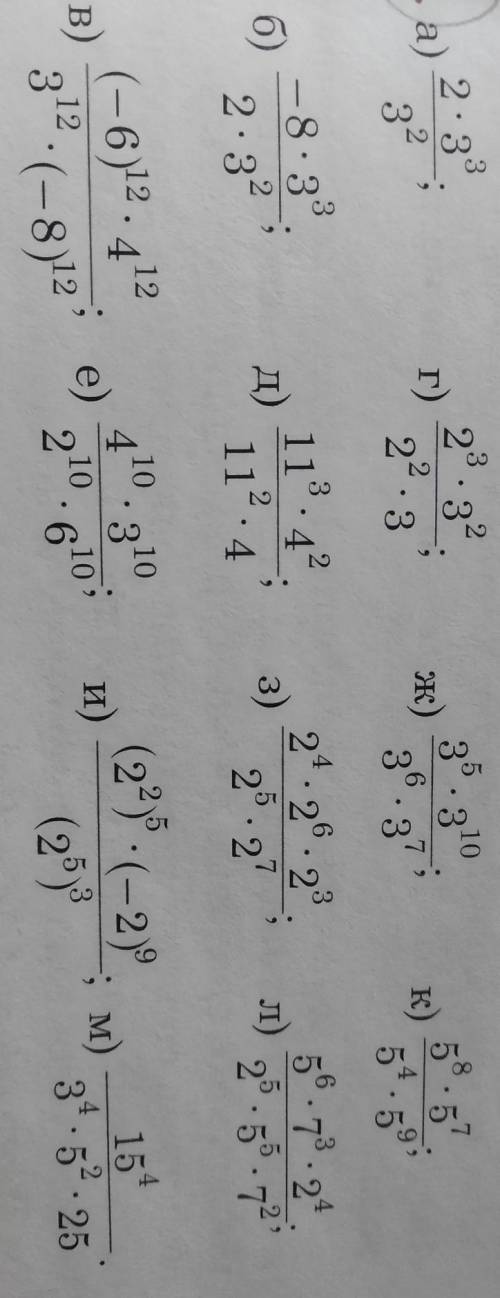 а) $\frac{2 \cdot 3^3}{3^2}$; г) $\frac{2^3 \cdot 3^2}{2^2 \cdot 3}$; ж) $\frac{3^5 \cdot 3^{10}}{3^6 \cdot 3^7}$; к) $\frac{5^8 \cdot 5^7}{5^4 \cdot 5^9}$;
б) $\frac{-8 \cdot 3^3}{2 \cdot 3^2}$; д) $\frac{11^3 \cdot 4^2}{11^2 \cdot 4}$; з) $\frac{2^4 \cdot 2^6 \cdot 2^3}{2^5 \cdot 2^7}$; л) $\frac{5^6 \cdot 7^3 \cdot 2^4}{2^5 \cdot 5^5 \cdot 7^2}$;
в) $\frac{(-6)^{12} \cdot 4^{12}}{3^{12} \cdot (-8)^{12}}$; е) $\frac{4^{10} \cdot 3^{10}}{2^{10} \cdot 6^{10}}$; и) $\frac{(2^2)^5 \cdot (-2)^9}{(2^5)^3}$; м) $\frac{15^4}{3^4 \cdot 5^2 \cdot 25}$.